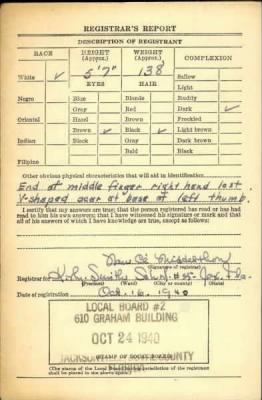 REGISTRAR'S REPORT
DESCRIPTION OF REGISTRANT
RACE HEIGHT (Approx.) WEIGHT (Approx.) COMPLEXION
White ✓ 5'7" 138 Sallow
EYES HAIR Light
Negro Blue Blonde Ruddy
Gray Red Dark ✓
Oriental Hazel Brown Freckled
Brown ✓ Black ✓ Light brown
Indian Black Gray Dark brown
Bald Black
Filipino
Other obvious physical characteristics that will aid in identification
End of middle finger right hand lost.
V-shaped scar at base of left thumb.
I certify that my answers are true; that the person registered has read or has had
read to him his own answers; that I have witnessed his signature or mark and that
all of his answers of which I have knowledge are true, except as follows:
(Signature of registrar)
Registrar for Duval #25 Jax. Fla.
(Precinct) (Ward) (City or county) (State)
Date of registration Oct. 16, 1940
LOCAL BOARD #2
610 GRAHAM BUILDING
OCT 24 1940
JACKSONVILLE, COUNTY
STAMP OF LOCAL BOARD
(The stamp of the Local Board having jurisdiction of the registrant
shall be placed in the above space.)